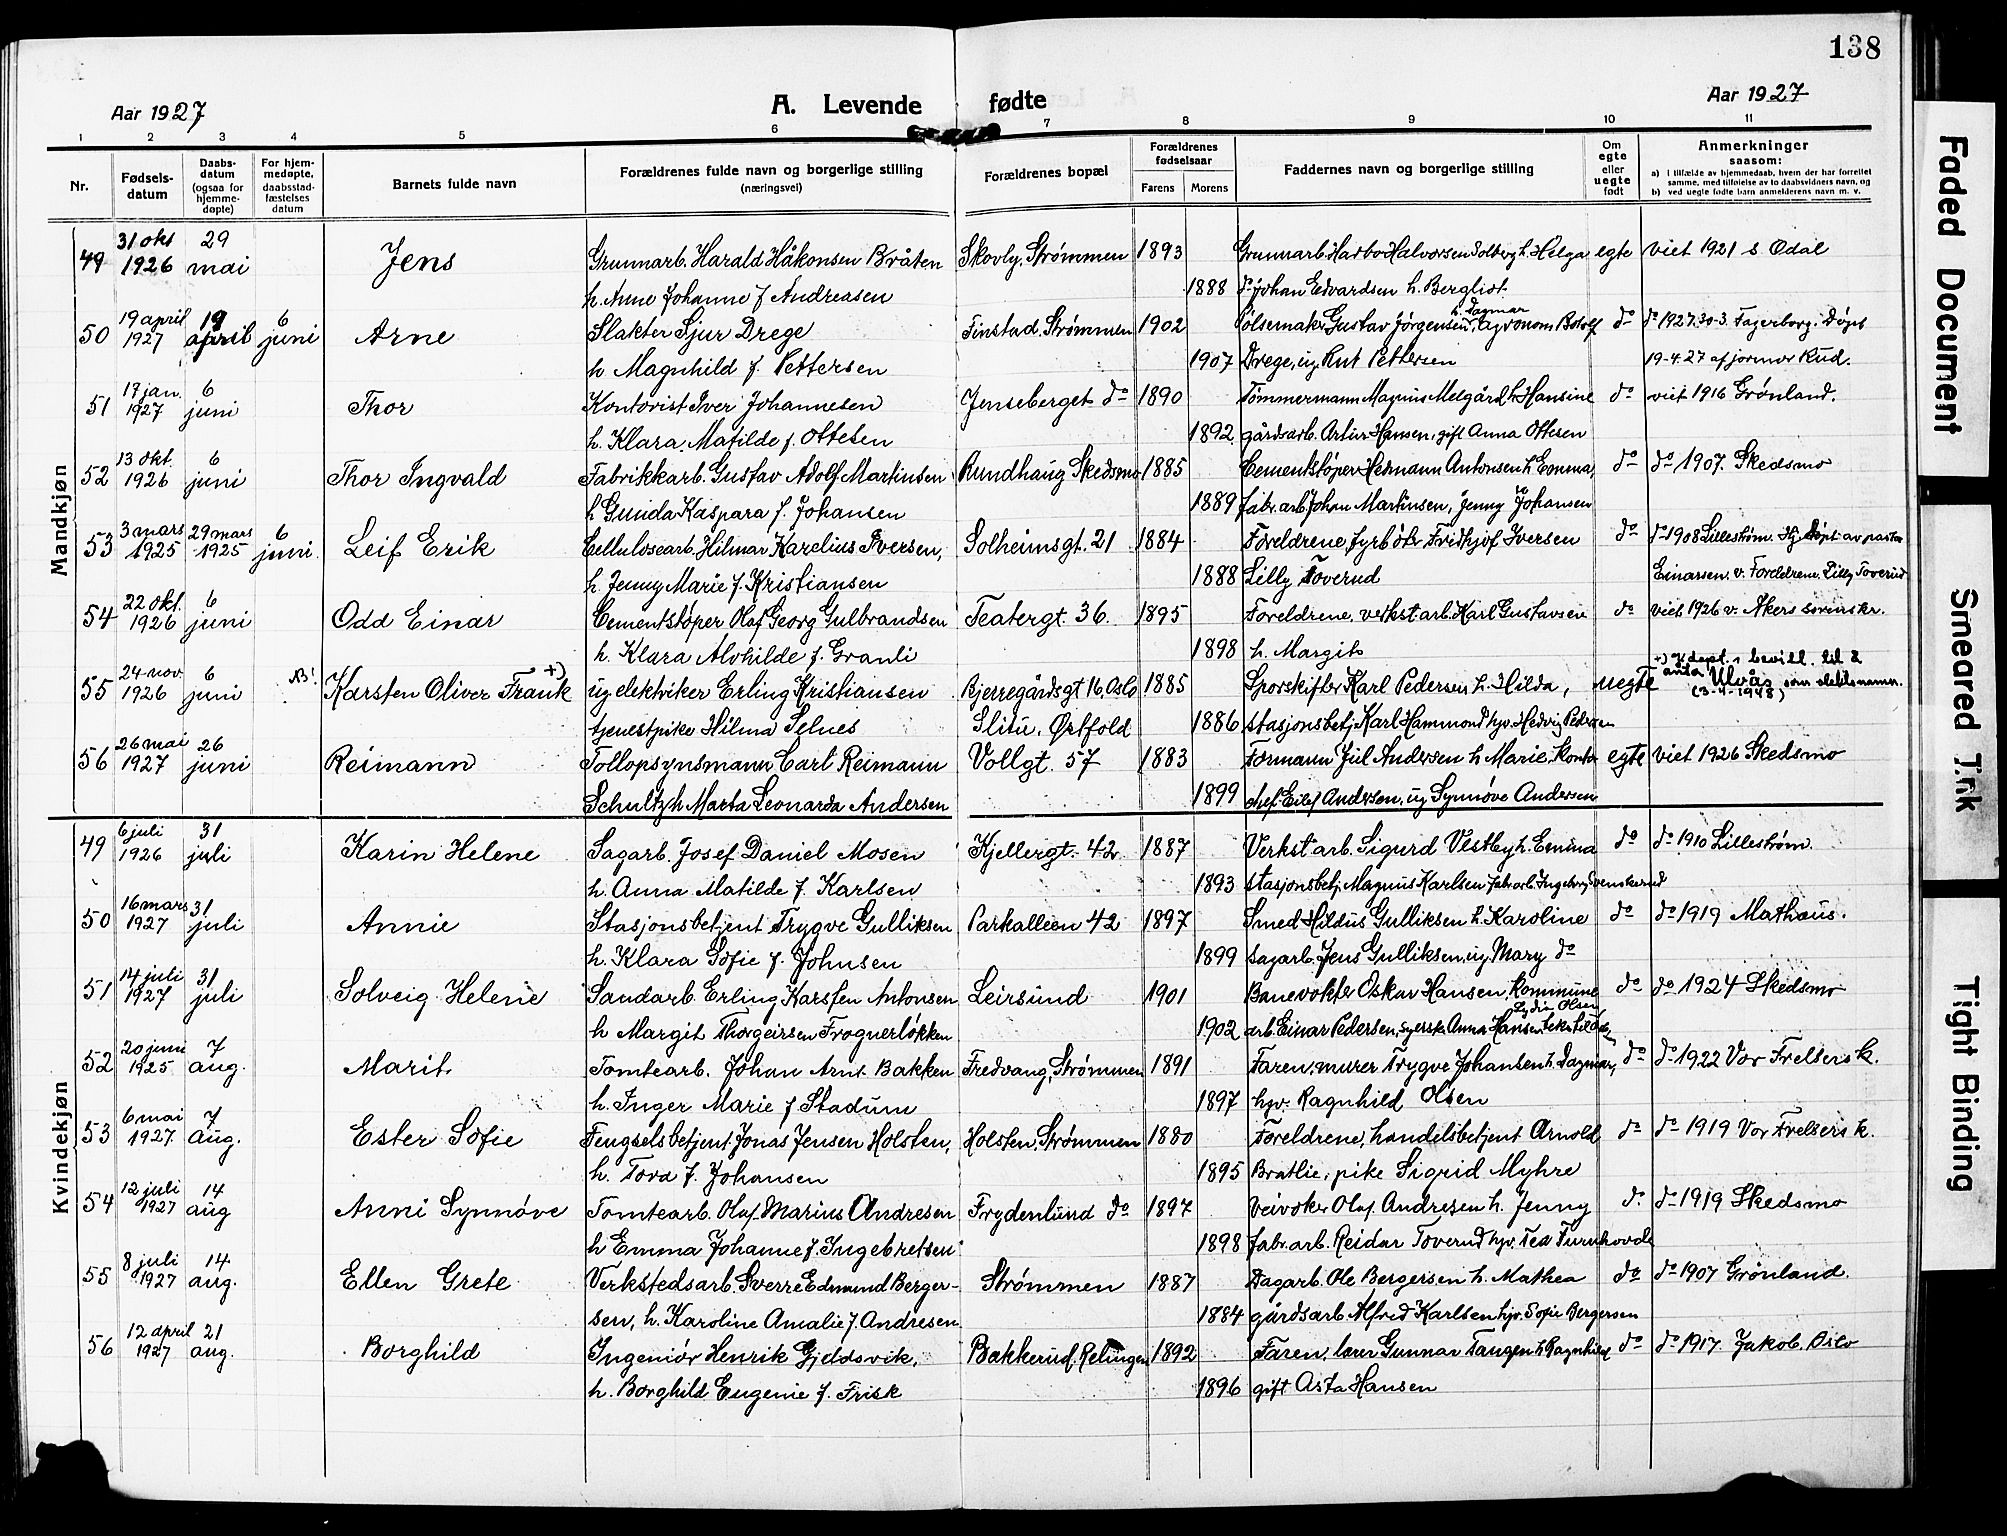 138
Aar 1927
A. Levende fødte
Aar 1927
1 2 3 4 5 6 7 8 9 10 11
Nr.
Fødsels-
datum
Daabs-
datum
(ogsaa for
hjemme-
døpte)
For hjem-
medøpte,
daabsstad-
fæstelses
datum
Barnets fulde navn
Forældrenes fulde navn og borgerlige stilling
(næringsvei)
Forældrenes bopæl
Forældrenes
fødselsaar
Farens Morens
Faddernes navn og borgerlige stilling
Om
egte
eller
uegte
født
Anmerkninger
saasom:
a) I tilfælde av hjemmedaab, hvem der har forrettet
samme, med tilføielse av to daabsvidners navn, og
b) ved uegte fødte barn anmelderens navn m. v.
Mandkjøn
49 31 okt 1926 29 mai Jens Grunnarb. Harald Håkonsen Bråten Skovly, Strømmen 1893 Grunnarb. Halvorsen Solberg h. Helga egte viet 1921 s Odal
h. Anne Johanne f Andreasen 1888 do Johan Edvardsen h. Bergliot
50 19 april 1927 19 april 6 juni Arne Slakter Sjur Drege Tinstad, Strømmen 1902 Pølsemaker Gustav Jørgensen, h. Dagmar, agronom Botolf do do 1927.30-3. Fagerborg. Døpt
h Magnhild f. Pettersen 1907 Drege, ug Rut Pettersen 19-4.27 af jormor Rud.
51 17 jan. 1927 6 juni Thor Kontorist Iver Johannesen Jenseberget do 1890 Tømmermann Magnus Melgård h Hansine do viet 1916 Grønland.
h. Klara Matilde f. Ottesen 1892 gårdsarb. Artur Hansen, gift Anna Ottesen
52 13 okt. 1926 6 juni Thor Ingvald Fabrikkarb. Gustav Adolf Martinsen Rundhaug Skedsmo 1885 Cementstøper Hermann Antonsen h Emma, do do 1907. Skedsmo
h Gunda Kaspara f. Johansen 1889 fabr.arb Johan Martinsen, Jenny Johansen
53 3 mars 1925 29 mars 1925 6 juni Leif Erik Cellulosearb. Hilmar Karelius Iversen, Solheimsgt. 21 1884 Foreldrene, fyrbøter Fridthjof Iversen do do 1908 Lillestrøm. Hj. døpt av pastor
h. Jenny Marie f. Kristiansen 1888 Lilly Toverud Einarsen. v. Foreldrene. Lilly Toverud
54 22 okt. 1926 6 juni Odd Einar Cementstøper Olaf Georg Gulbrandsen Teatergt. 36. 1895 Foreldrene, verkst.arb. Karl Gustavsen do viet 1926 v. Akers sorenskr.
h. Klara Alvhilde f. Granli 1898 h. Margit
55 24 nov. 1926 6 juni Karsten Oliver Frank +) ug elektriker Erling Kristiansen Bjerregårdsgt 16, Oslo 1885 Sporskifter Karl Pedersen h. Hilda, uegte +) J.dept.s bevill. til å anta Ulvås som slektsnavn.
(3-4-1948)
tjenestpike Hilma Selnes Slitu, Østfold 1886 stasjonsbetj. Karl Hammond hjv. Hedvig Pedersen
56 26 mai 1927 26 juni Reimann Tollopsynsmann Carl Reimann Vollgt. 57 1883 Formann Juel Andersen h Marie, kontor egte viet 1926 Skedsmo
Schultz h Marta Leonarda Andersen 1899 chef Eilef Andersen, ug Synnøve Andersen
Kvindekjøn
49 6 juli 1926 31 juli Karin Helene Sagarb. Josef Daniel Mosen Kjellergt. 42 1887 Verkst.arb. Sigurd Vestby h. Emma do do 1910 Lillestrøm.
h. Anna Matilde f. Karlsen 1893 stasjonsbetj. Magnus Karlsen fabr.arb. Ingeborg Svenskerud
50 16 mars 1927 31 juli Annie Stasjonsbetjent Trygve Gulliksen Parkalleen 42 1897 Smed Hildus Gulliksen h. Karoline do do 1919 Mathæus.
h. Klara Sofie f. Johnsen 1899 sagarb. Jens Gulliksen, ug Mary do
51 14 juli 1927 31 juli Solveig Helene Sandarb. Erling Karsten Antonsen Leirsund 1901 Banevokter Oskar Hansen, kommune do do 1924 Skedsmo
h Margit Thorgeirsen Frognerløkken 1902 arb. Einar Pedersen, syerske Anna Hansen, Lydia Olsen
52 20 juni 1925 7 aug. Marit Tomtearb. Johan Arnt Bakken Fredvang, Strømmen 1891 Faren, murer Trygve Johansen h. Dagmar, do do 1922 Vor Frelsers k.
h. Inger Marie f Stadum 1897 hjv. Ragnhild Olsen
53 6 mai 1927 7 aug. Ester Sofie Fengselsbetjent Jonas Jensen Holsten, Holsten, Strømmen 1880 Foreldrene, handelsbetjent Arnold do do 1919 Vor Frelsers k.
h. Tora f. Johansen 1895 Bratlie, pike Sigrid Myhre
54 12 juli 1927 14 aug Anni Synnøve Tomtearb. Olaf Marius Andresen Frydenlund do 1897 Veivokter Olaf Andresen h. Jenny do do 1919 Skedsmo
h Emma Johanne f. Ingebretsen 1898 fabr.arb. Reidar Toverud hjv. Tea Furuhovde
55 8 juli 1927 14 aug. Ellen Grete Verkstedsarb. Sverre Edmund Berger- Strømmen 1887 Dagarb. Ole Bergersen h. Mathea do do 1907 Grønland.
sen, h. Karoline Amalie f. Andresen 1884 gårdsarb. Alfred Karlsen hjv. Sofie Bergersen
56 12 april 1927 21 aug. Borghild Ingeniør Henrik Gjeldsvik, Bakkerud, Relingen 1892 Faren, lærer Gunnar Tangen h Ragnhild do do 1917. Jakob, Oslo
h. Borghild Eugenie f. Frisk 1896 gift Asta Hansen
Faded Document
Smeared Ink
Tight Binding